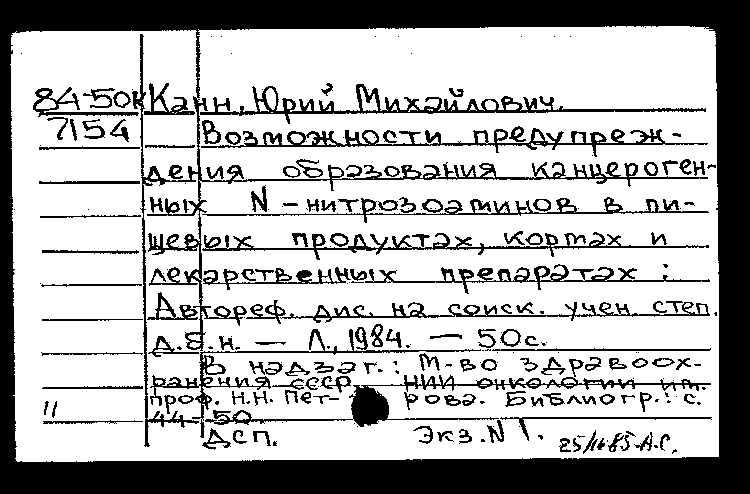 84-50к Канн, Юрий Михайлович.
7154 Возможности предупреж-
дения образования канцероген-
ных N-нитрозоаминов в пи-
щевых продуктах, кормах и
лекарственных препаратах :
Автореф. дис. на соиск. учен. степ.
д.б.н. — Л., 1984. — 50с.
В надзаг.: М-во здравоох-
ранения СССР, НИИ онкологии им.
11 проф. Н.Н. Пет- рова. Библиогр.: с.
44-50
ДСП. Экз. N 1. 85-А.С.